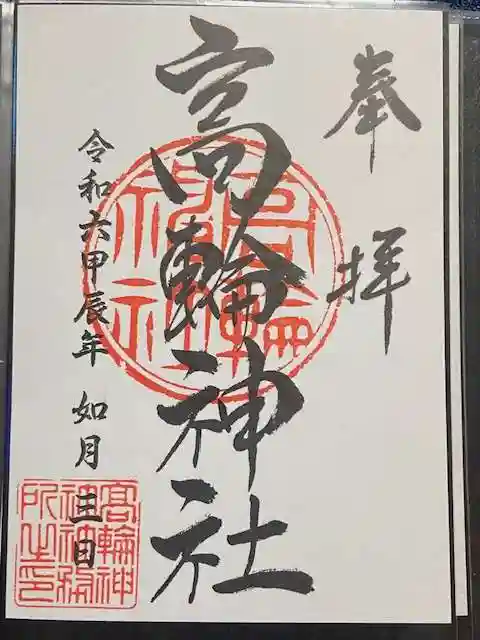 奉拝
高輪神社
令和六甲辰年 如月 三日
高輪神社
高輪神
社神務
所之印